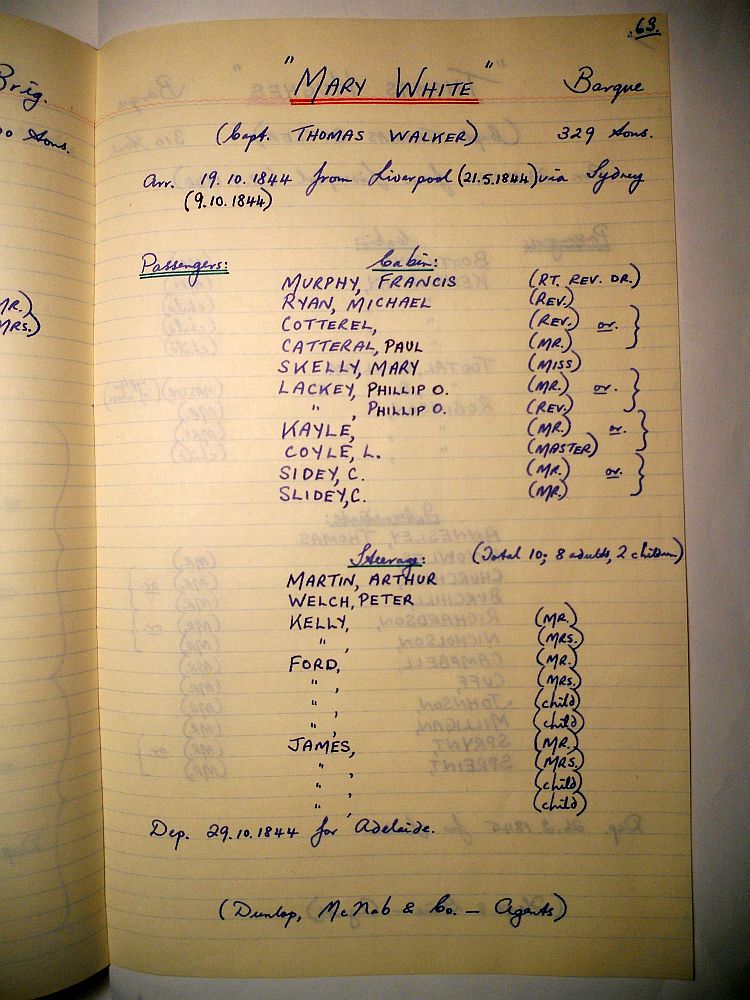 Brig.
tons.
MR.)
MRS.)
63.
"MARY WHITE" Barque
(Capt. THOMAS WALKER) 329 tons.
Arr. 19.10.1844 from Liverpool (21.5.1844) via Sydney
(9.10.1844)
Passengers: Cabin:
MURPHY, FRANCIS (RT. REV. DR.)
RYAN, MICHAEL (REV.)
COTTEREL, (REV.) or.
CATTERAL, PAUL (MR.)
SKELLY, MARY (MISS)
LACKEY, PHILLIP O. (MR.) or.
" , PHILLIP O. (REV.)
KAYLE, (MR.) or.
COYLE, L. (MASTER)
SIDEY, C. (MR.) or.
SLIDEY, C. (MR.)
Steerage: (Total 10; 8 adults, 2 children)
MARTIN, ARTHUR
WELCH, PETER
KELLY, (MR.)
" , (MRS.)
FORD, (MR.)
" , (MRS.)
" , (child)
" , (child)
JAMES, (MR.)
" , (MRS.)
" , (child)
" , (child)
Dep. 29.10.1844 for Adelaide.
(Dunlop, McNab & Co. — Agents)